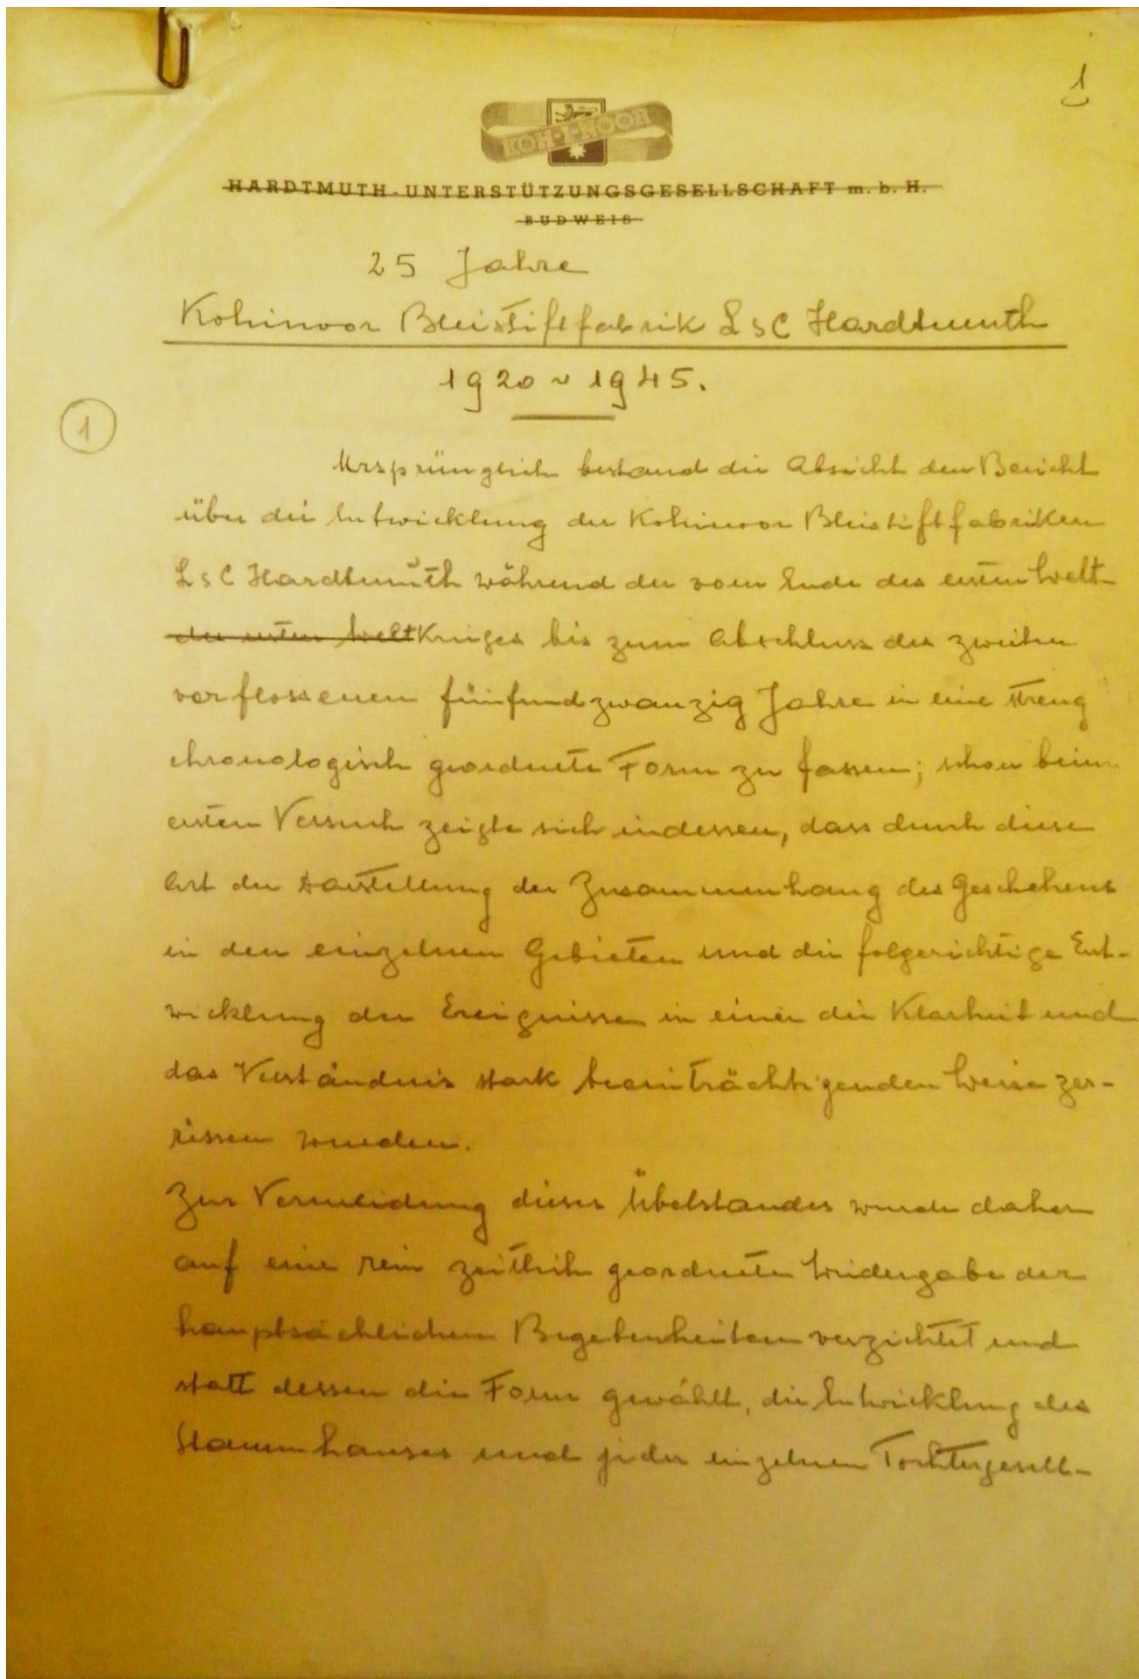 1
KOH-I-NOOR
HARDTMUTH-UNTERSTÜTZUNGSGESELLSCHAFT m. b. H.
BUDWEIS
25 Jahre
Kohinoor Bleistiftfabrik L & C Hardtmuth
1920 ~ 1945.
1
Ursprünglich bestand die Absicht den Bericht
über die Entwicklung der Kohinoor Bleistiftfabriken
L & C Hardtmuth während der vom Ende des ersten Welt-
des ersten Weltkrieges bis zum Abschluss des zweiten
verflossenen fünfundzwanzig Jahre in eine streng
chronologisch geordnete Form zu fassen; schon beim
ersten Versuch zeigte sich indessen, dass durch diese
Art der Darstellung der Zusammenhang des Geschehens
in den einzelnen Gebieten und die folgerichtige Ent-
wicklung der Ereignisse in einer die Klarheit und
das Verständnis stark beeinträchtigenden Weise zer-
rissen wurden.
Zur Vermeidung dieses Übelstandes wurde daher
auf eine rein zeitlich geordnete Wiedergabe der
hauptsächlichen Begebenheiten verzichtet und
statt dessen die Form gewählt, die Entwicklung des
Stammhauses und jeder einzelnen Tochtergesell-